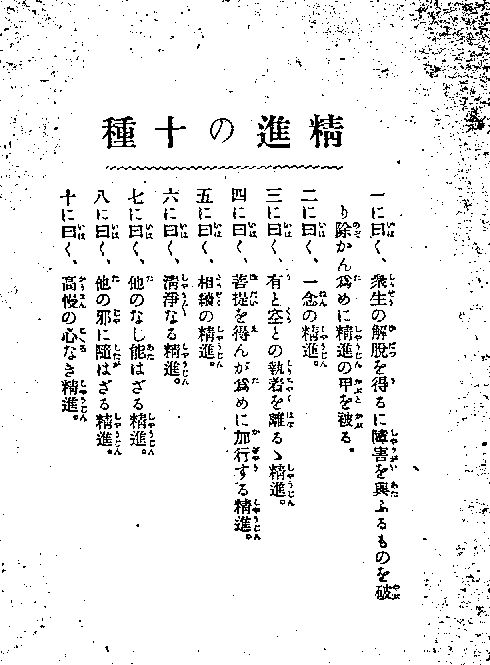 精進の十種
一に曰く、衆生の解脫を得るに障害を與ふるものを破
り除かん爲めに精進の甲を被る。
二に曰く、一念の精進。
三に曰く、有と空との執着を離るゝ精進。
四に曰く、菩提を得んが爲めに加行する精進。
五に曰く、相續の精進。
六に曰く、淸淨なる精進。
七に曰く、他のなし能はざる精進。
八に曰く、他の邪に隨はざる精進。
十に曰く、高慢の心なき精進。